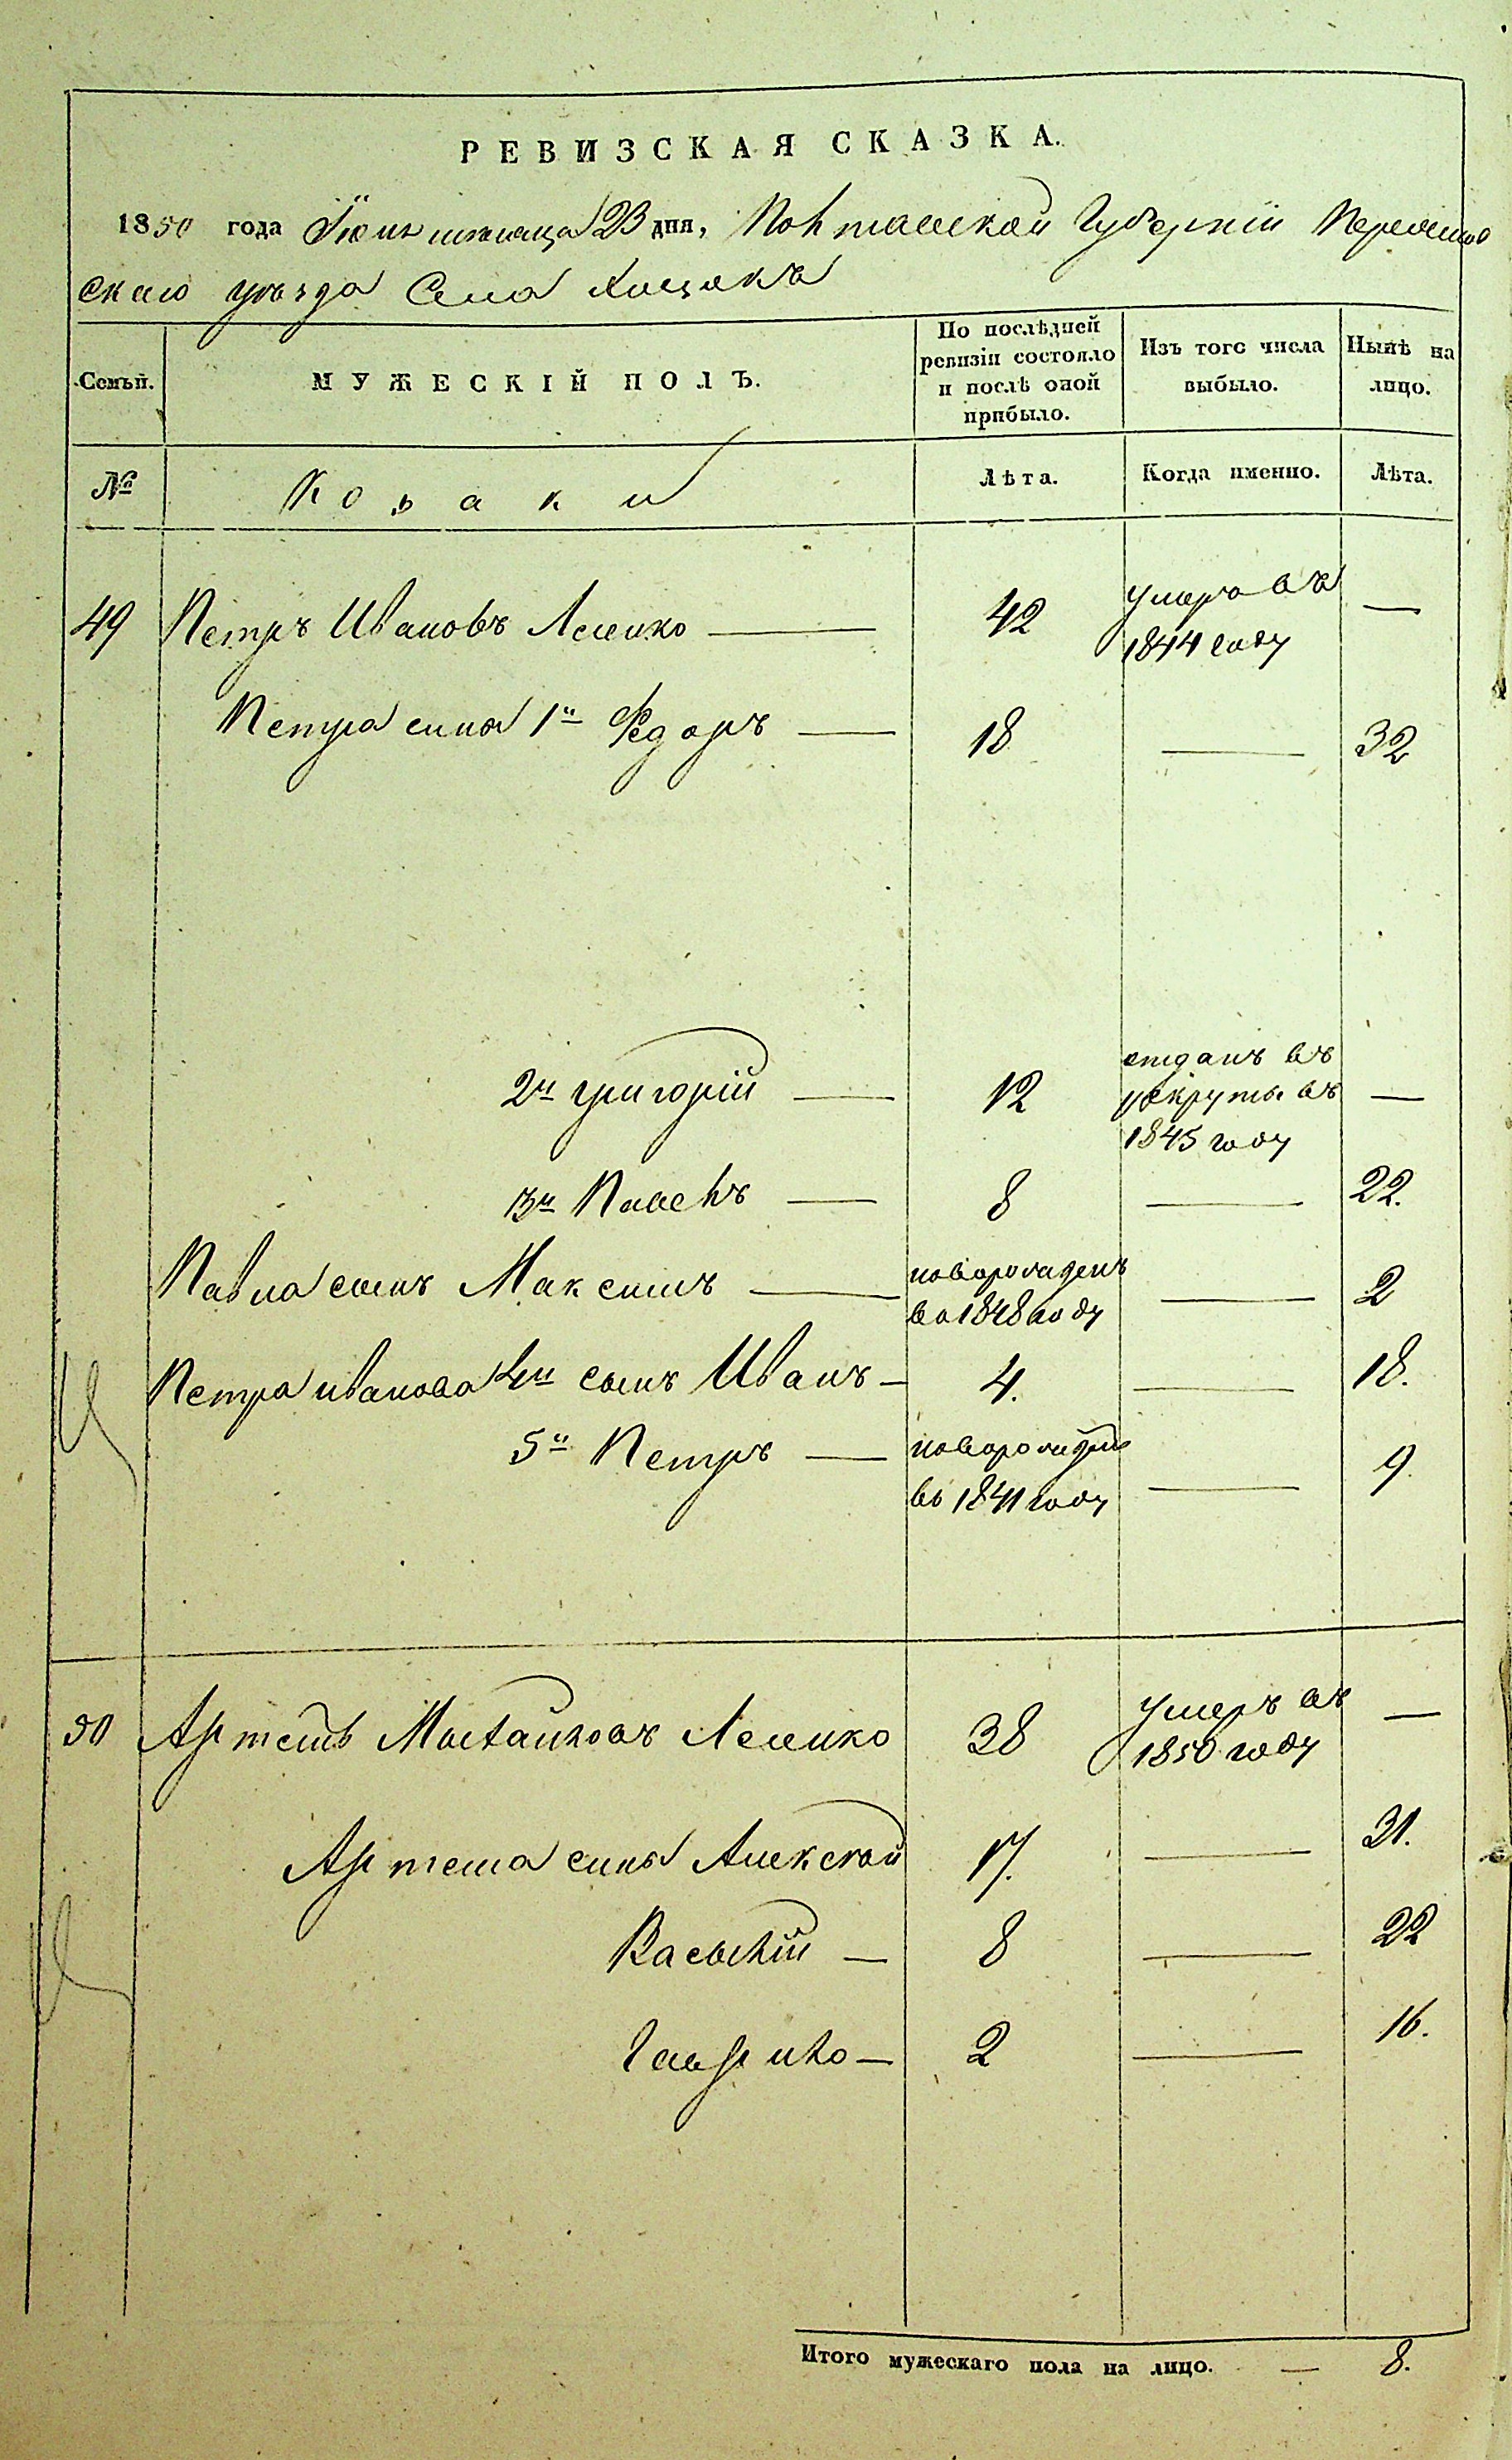 РЕВИЗСКАЯ СКАЗКА.
1850 года Июня месяца 23 дня, Полтавской Губерніи Переяслов
скаго уѣзда Села Хоцокъ
Семьи.
МУЖЕСКІЙ ПОЛЪ.
По послѣдней ревизіи состояло и послѣ оной прибыло.
Изъ того числа выбыло.
Нынѣ на лицо.
№
Козаки
Лѣта.
Когда именно.
Лѣта.
49 Петръ Ивановъ Леленко — 42 умеръ въ 1844 году —
Петра сыны 1й Федоръ — 18 — 32
2й григорій — 12 отданъ въ рекруты въ 1845 году —
3й Павелъ — 8 — 22.
Павла сынъ Максимъ — новорожденъ во 1848 году — 2
Петра иванова 4й сынъ Иванъ — 4. — 18.
5й Петръ — новорожден въ 1841 году — 9
50 Артемъ Михайловъ Леленко 38 умеръ въ 1850 году —
Артема сыны Алексѣй 17. — 31.
Василій — 8 — 22
Гаврило — 2 — 16.
Итого мужескаго пола на лицо. — 8.